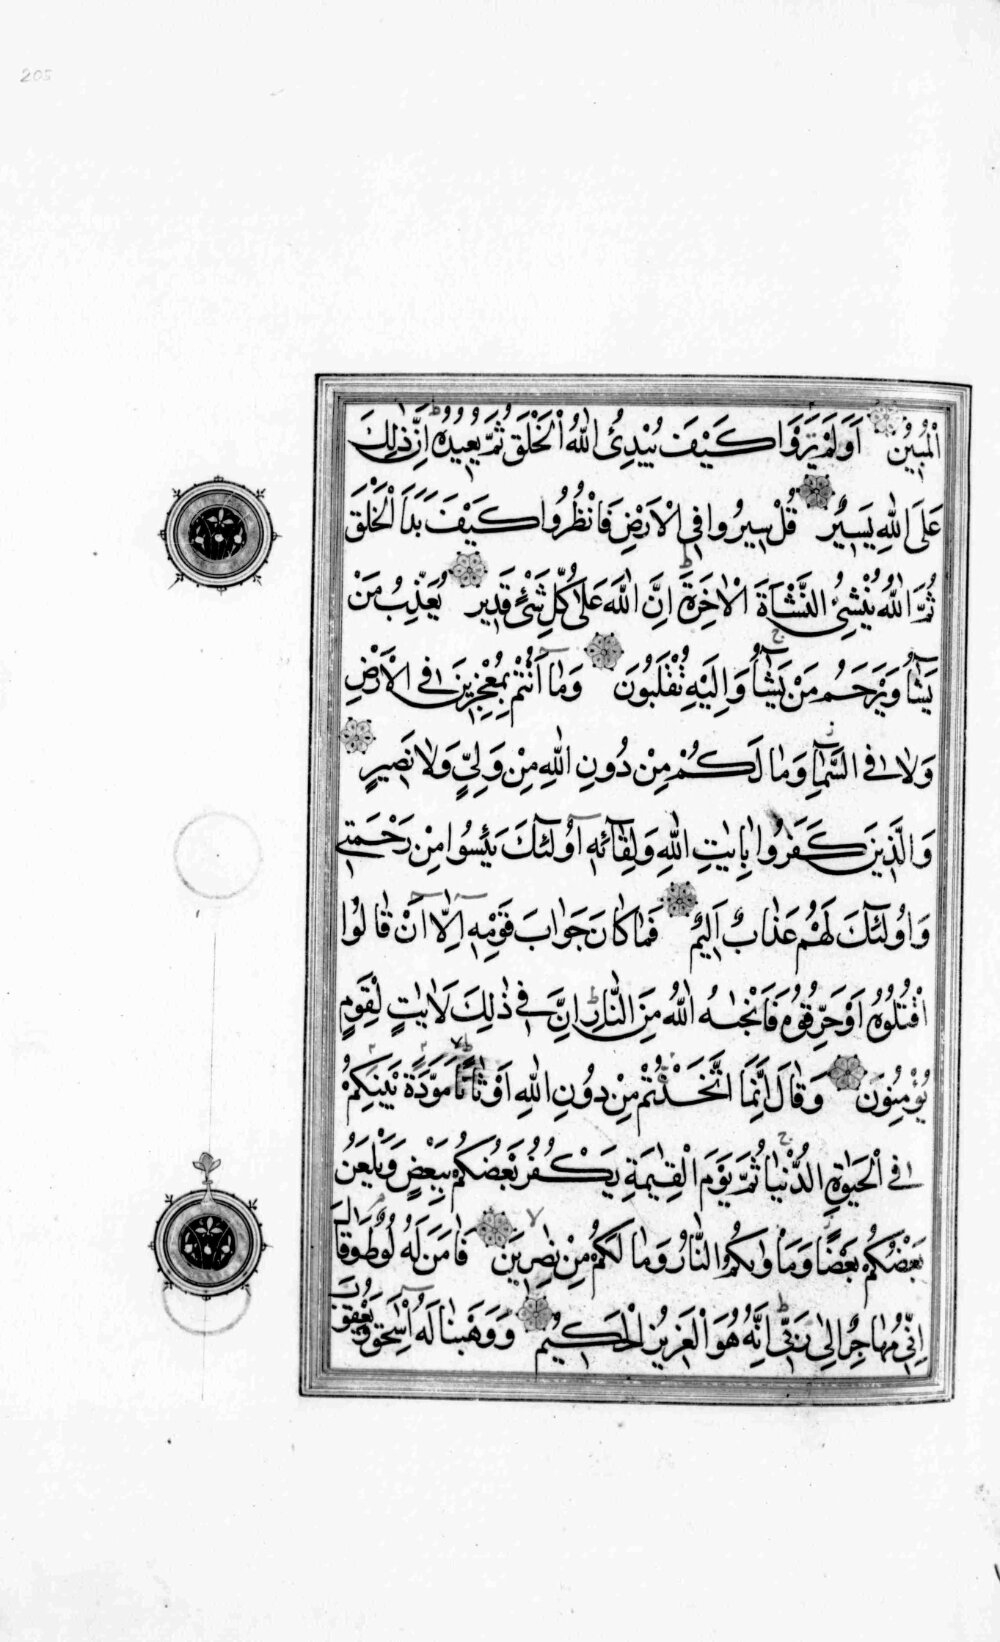 205
الْمُبِينُ اَوَلَمْ يَرَوْا كَيْفَ يُبْدِئُ اللّٰهُ الْخَلْقَ ثُمَّ يُعِيدُهُ اِنَّ ذٰلِكَ
عَلَى اللّٰهِ يَسِيرٌ قُلْ سِيرُوا فِي الْاَرْضِ فَانْظُرُوا كَيْفَ بَدَاَ الْخَلْقَ
ثُمَّ اللّٰهُ يُنْشِئُ النَّشْاَةَ الْاٰخِرَةَ اِنَّ اللّٰهَ عَلٰى كُلِّ شَيْءٍ قَدِيرٌ يُعَذِّبُ مَنْ
يَشَآءُ وَيَرْحَمُ مَنْ يَشَآءُ وَاِلَيْهِ تُقْلَبُونَ وَمَآ اَنْتُمْ بِمُعْجِزِينَ فِي الْاَرْضِ
وَلَا فِي السَّمَآءِ وَمَا لَكُمْ مِنْ دُونِ اللّٰهِ مِنْ وَلِيٍّ وَلَا نَصِيرٍ
وَالَّذِينَ كَفَرُوا بِاٰيٰتِ اللّٰهِ وَلِقَآئِهِ اُولٰٓئِكَ يَئِسُوا مِنْ رَحْمَتِي
وَاُولٰٓئِكَ لَهُمْ عَذَابٌ اَلِيمٌ فَمَا كَانَ جَوَابَ قَوْمِهِ اِلَّآ اَنْ قَالُوا
اقْتُلُوهُ اَوْ حَرِّقُوهُ فَاَنْجٰيهُ اللّٰهُ مِنَ النَّارِ اِنَّ فِي ذٰلِكَ لَاٰيٰتٍ لِقَوْمٍ
يُؤْمِنُونَ وَقَالَ اِنَّمَا اتَّخَذْتُمْ مِنْ دُونِ اللّٰهِ اَوْثَانًا مَوَدَّةَ بَيْنِكُمْ
فِي الْحَيٰوةِ الدُّنْيَا ثُمَّ يَوْمَ الْقِيٰمَةِ يَكْفُرُ بَعْضُكُمْ بِبَعْضٍ وَيَلْعَنُ
بَعْضُكُمْ بَعْضًا وَمَاْوٰيكُمُ النَّارُ وَمَا لَكُمْ مِنْ نٰصِرِينَ فَاٰمَنَ لَهُ لُوطٌ وَقَالَ
اِنِّي مُهَاجِرٌ اِلٰى رَبِّي اِنَّهُ هُوَ الْعَزِيزُ الْحَكِيمُ وَوَهَبْنَا لَهُ اِسْحٰقَ وَيَعْقُوبَ